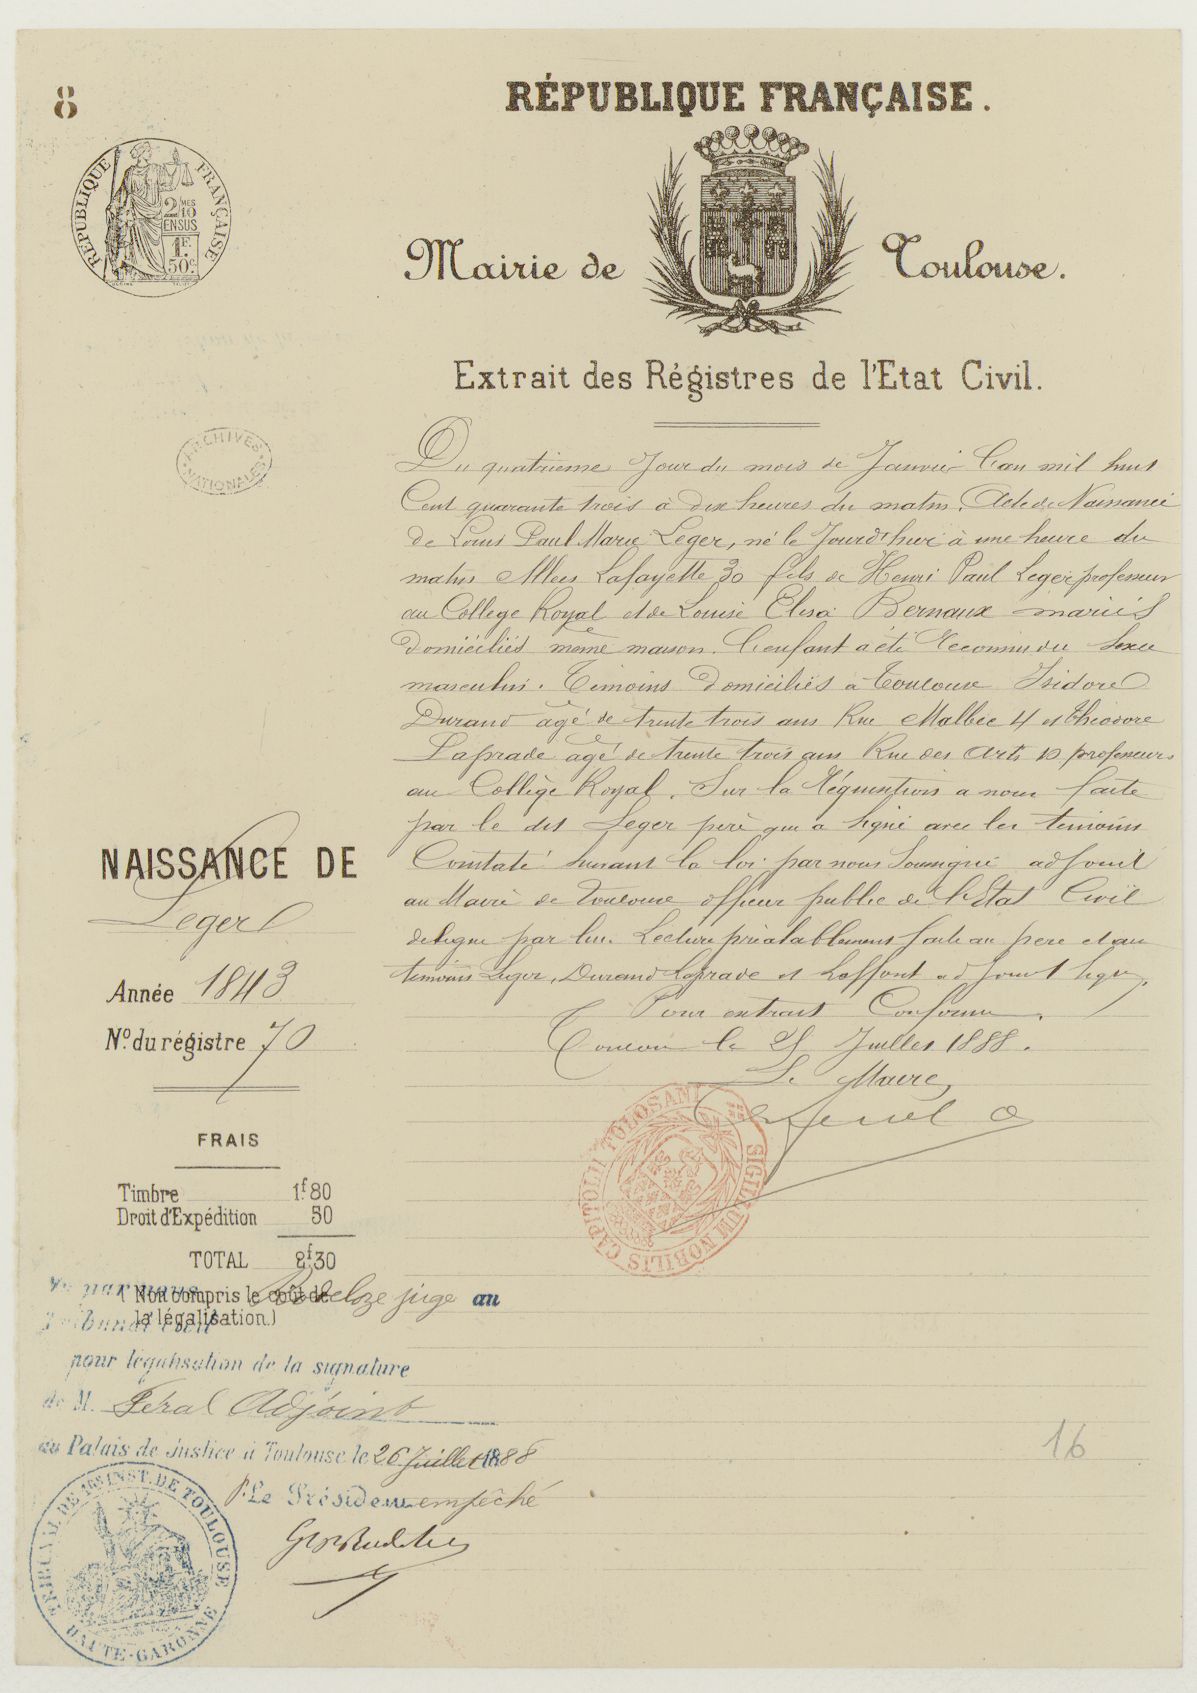 8
RÉPUBLIQUE FRANÇAISE.
RÉPUBLIQUE FRANÇAISE
2 MES
10
EN SUS
1F.
50c
Mairie de Toulouse.
Extrait des Régistres de l'Etat Civil.
ARCHIVES NATIONALES
Du quatrieme Jour du mois de Janvier l'an mil huit
Cent quarante trois à dix heures du matin. Acte de Naissance
de Louis Paul Marie Leger, né le Jourd'hui à une heure du
matin Allees Lafayette 30 fils de Henri Paul Leger professeur
au College Royal et de Louise Elisa Bernaux mariés
domiciliés même maison. L'enfant a été Reconnu du Sexe
masculin. Témoins domiciliés à Toulouse Isidore
Durand agé de trente trois ans Rue Malbec 4 et Théodore
Laprade agé de trente trois ans Rue des Arts 10 professeurs
au Collège Royal. Sur la Réquisition a nous faite
par le dit Leger père qui a signé avec les témoins
Constaté suivant la loi par nous Soussigné adjoint
au Maire de Toulouse officier public de l'Etat Civil
delegué par lui. Lecture préalablement faite au pere et aux
temoins Leger, Durand Laprade et Laffont adjoint signé.
Pour extrait Conforme.
Toulouse le 25 Juillet 1888.
Le Maire,
SIGILLUM NOBILIS CAPITOLII TOLOSANI
NAISSANCE DE
Leger
Année 1843
No. du régistre 70
FRAIS
Timbre 1f80
Droit d'Expédition 50
TOTAL 2f30
(Non compris le coût de
la légalisation.)
Vu par nous juge au
Tribunal civil
pour légalisation de la signature
de M. Féral Adjoint
au Palais de Justice à Toulouse le 26 Juillet 1888
P. Le Président empêché
TRIBUNAL DE 1re INST. DE TOULOUSE
HAUTE-GARONNE
16